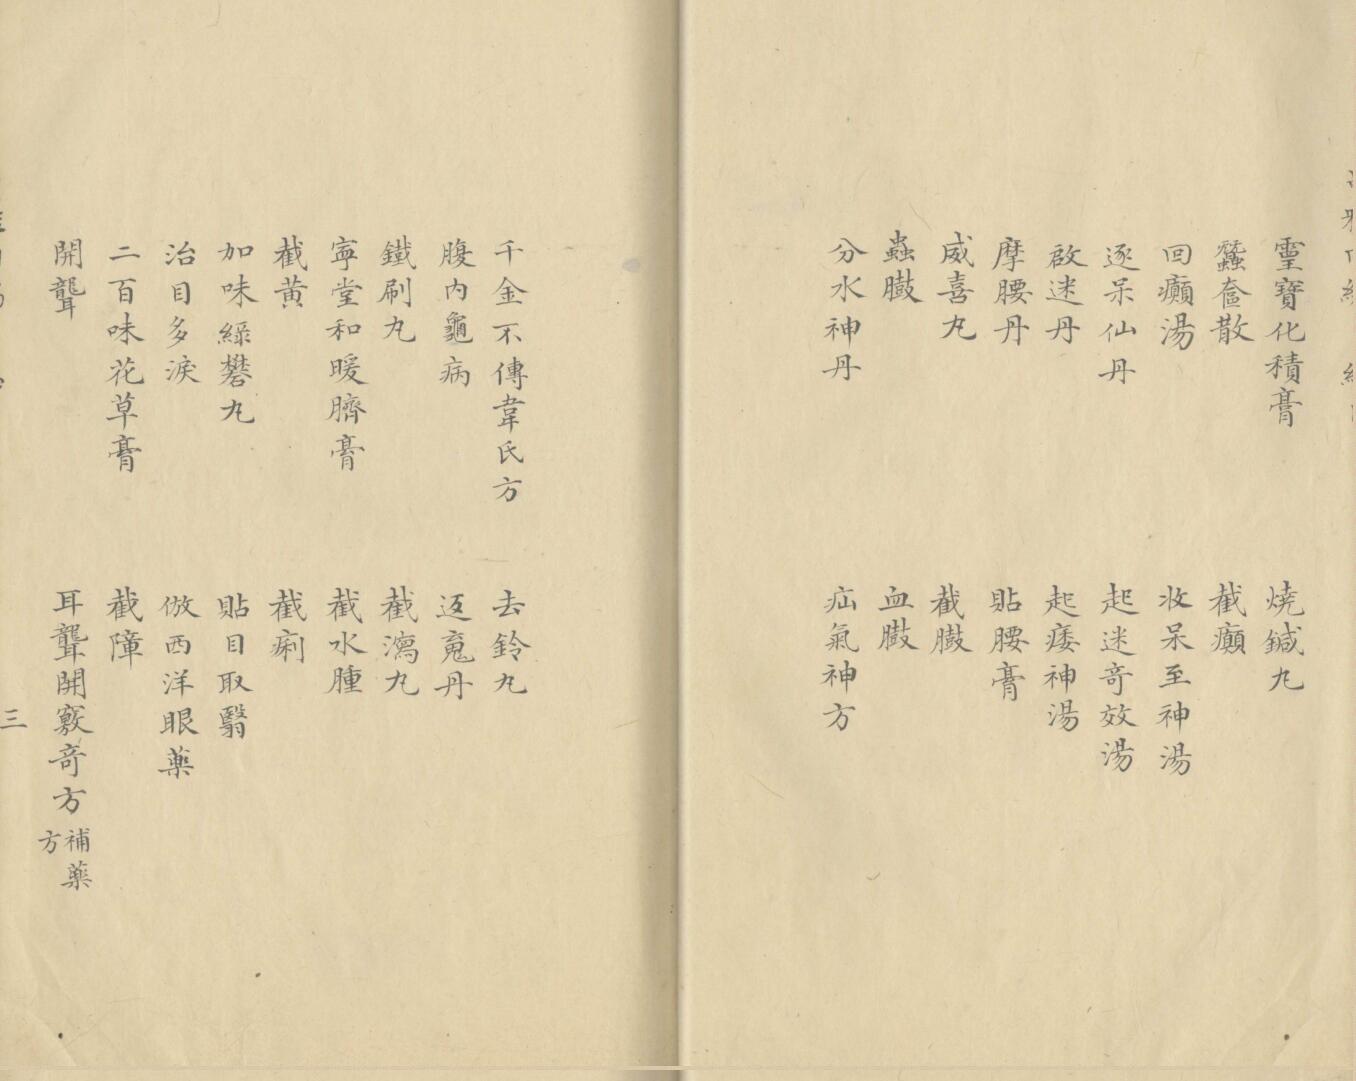 靈寶化積膏　燒鍼丸
蠶奩散　截癲
回癲湯　收呆至神湯
逐呆仙丹　起迷奇效湯
啟迷丹　起痿神湯
摩腰丹　貼腰膏
威喜丸　截臌
蟲臌　血臌
分水神丹　疝氣神方
千金不傳韋氏方　去鈴丸
腹內龜病　返䰟丹
鐵刷丸　截瀉丸
寜堂和暖臍膏　截水腫
截黃　截痢
加味綠礬丸　貼目取翳
治目多淚　倣西洋眼藥
二百味花草膏　截障
開聾　耳聾開竅奇方補藥方
三